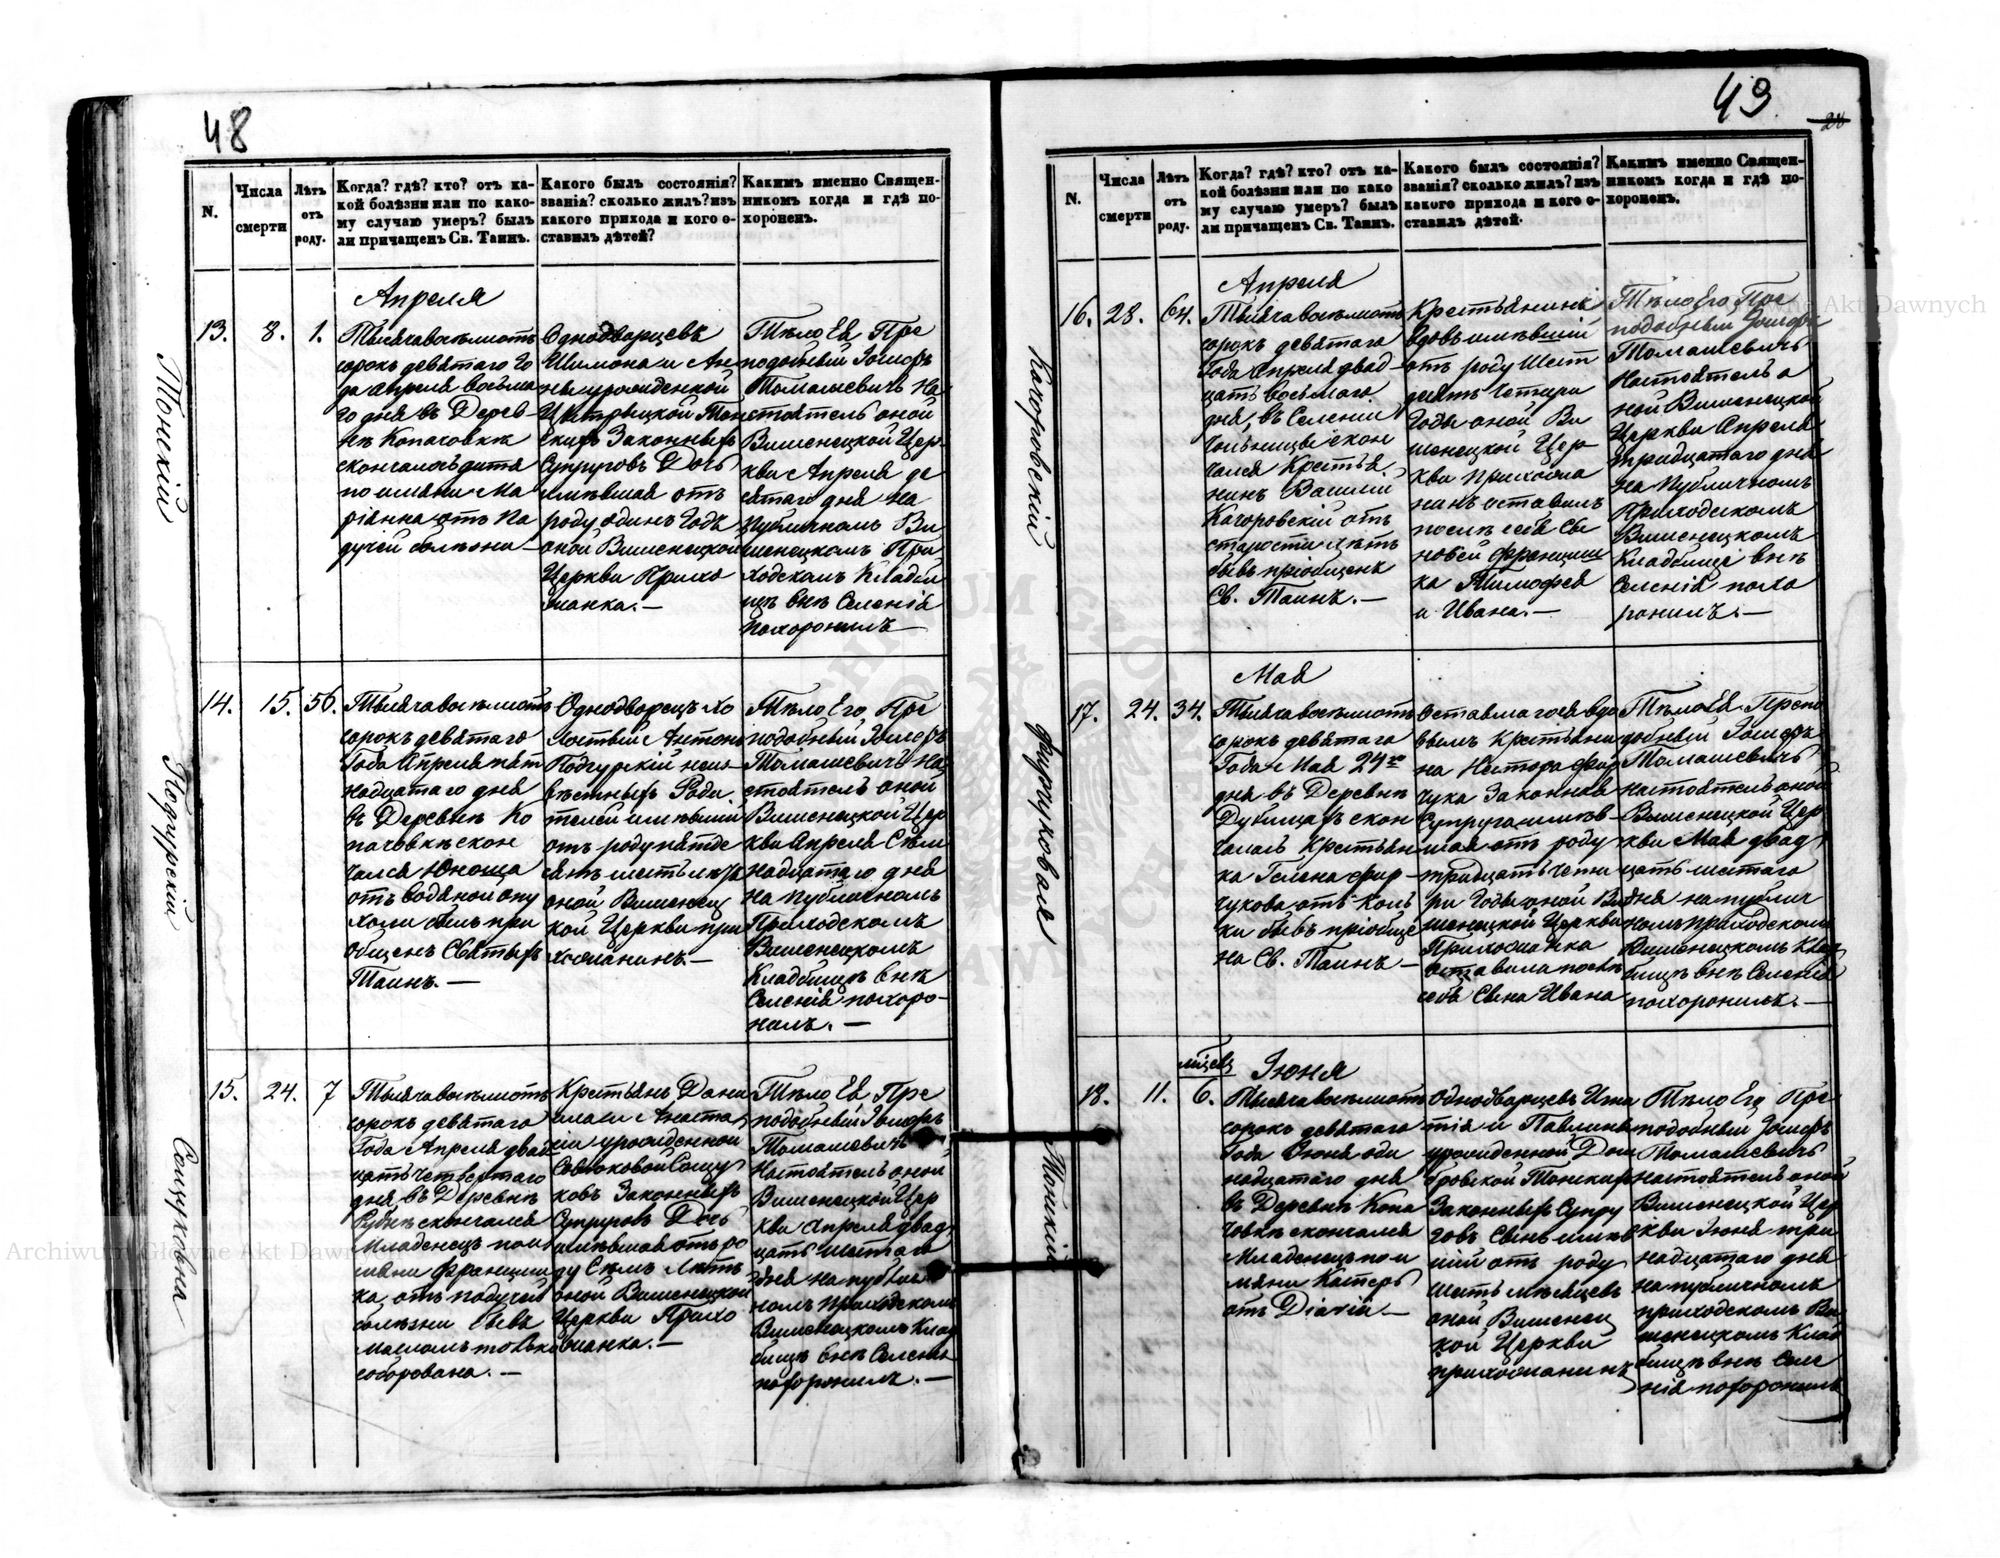 48
N.
Числа
смерти
Лѣтъ
отъ
роду.
Когда? гдѣ? кто? отъ ка-
кой болѣзни или по како-
му случаю умеръ? былъ
ли причащенъ Св. Таинъ.
Какого былъ состоянія?
званія? сколько жилъ? изъ
какого прихода и кого о-
ставилъ дѣтей?
Какимъ именно Священ-
никомъ когда и гдѣ по-
хороненъ.
Тонкій
13. 8. 1.
Апреля
Тысяча восемьсотъ
сорокъ девятаго Го
да Апреля восьма
го дня въ Дерев-
нѣ Копаховкѣ
скончалось дитя
по имяни Ма
ріанна отъ па
дучей болезни
Однодворцевъ
Шимона и Ан
ны урожденской
Тон
скихъ Законныхъ
Супруговъ Дочь
имѣвшая отъ
роду одинъ Годъ
оной Вишенецкой
Церкви Прихо
жанка.—
Тѣло Ея Пре
подобный Іосифъ
Томашевичъ На
стоятель оной
Вишенецкой Цер-
кви Апреля де
сятаго дня на
Публичномъ Ви
шенецкомъ При
ходскомъ Кладби
щѣ внѣ Селенія
похоронилъ—
Подгурскій
14. 15. 56.
Тысяча восемьсотъ
сорокъ девятаго
Года Апреля пят
надцатаго дня
въ Деревнѣ Ко
паховкѣ скон
чался Юноша
отъ водяной опу
холи бывъ при
общенъ Святыхъ
Таинъ.—
Однодворецъ Хо
лостый Антонъ
Подгурскій неиз-
вѣстныхъ Роди
телей имѣвшій
отъ роду пятде
сятъ шесть лѣтъ
оной Вишенец
кой Церкви при
хожанинъ.—
Тѣло Его Пре
подобный Іосифъ
Томашевичъ На
стоятель оной
Вишенецкой Цер
кви Апреля Семи
надцатаго дня
на публичномъ
Приходскомъ
Вишенецкомъ
Кладбищѣ внѣ
Селенія похоро-
нилъ.—
Сощуковна
15. 24. 7
Тысяча восемьсотъ
сорокъ девятаго
Года Апреля двад
цать четвертаго
дня въ Деревнѣ
скончался
Младенецъ по и
мяни Франциш
ка отъ падучей
болезни бывъ
масломъ только
соборована.—
Крестьянъ Дани
ила и Анаста
сіи урожденной
Сощу
ковъ Законныхъ
Супруговъ Дочь
имѣвшая отъ ро
ду Семь лѣтъ
оной Вишенецкой
Церкви Прихо
жанка.—
Тѣло Ея Пре
подобный Іосифъ
Томашевичъ
Настоятель оной
Вишенецкой Цер
кви Апреля двад
цать шестаго
дня на публич
номъ приходскомъ
Вишенецкомъ Клад
бищѣ внѣ Селенія
похоронилъ.—
49
28
N.
Числа
смерти
Лѣтъ
отъ
роду.
Когда? гдѣ? кто? отъ ка-
кой болѣзни или по како
му случаю умеръ? былъ
ли причащенъ Св. Таинъ.
Какого былъ состоянія?
званія? сколько жилъ? изъ
какого прихода и кого о-
ставилъ дѣтей.
Какимъ именно Священ-
никомъ когда и гдѣ по-
хороненъ.
Качоровскій
16. 28. 64.
Апреля
Тысяча восемьсотъ
сорокъ девятаго
Года Апреля двад-
цать восьмаго
дня, въ Селеніи
скон
чался Крестья
нинъ Василій
Качоровскій отъ
старости лѣтъ
бывъ пріобщенъ
Св. Таинъ.—
Крестьянинъ
вдовъ имѣвшій
отъ роду шест
десятъ четыри
Годы оной Ви
шенецкой Цер-
кви Прихожа
нинъ оставилъ
послѣ себя Сы
новей Францыш
ка Тимофея
и Ивана.—
Тѣло Его Пре
подобный Іосифъ
Томашевичъ
Настоятель о
ной Вишенецкой
Церкви Апреля
тридцатаго дня
на Публичномъ
Приходскомъ
Вишенецкомъ
Кладбищѣ внѣ
Селенія похо
ронилъ.—
Фирчуковая
17. 24. 34.
Мая
Тысяча восемьсотъ
сорокъ девятаго
Года Мая 24го
дня въ Деревнѣ
Дубищахъ скон
чалась Крестьян
ка Гелена Фир-
чукова отъ коль
ки бывъ пріобще
на Св. Таинъ—
Оставшагося вдо
вымъ Крестьяни
на Нестора Фир
чука Законная
Супруга имѣв-
шая отъ роду
тридцать четы
ри Годы оной Ви
шенецкой Церкви
Прихожанка
оставила послѣ
себя Сына Ивана
Тѣло Ея Препо
добный Іосифъ
Томашевичъ
Настоятель оной
Вишенецкой Цер
кви Мая двад
цать шестаго
дня на публич
номъ приходскомъ
Вишенецкомъ Клад
бищѣ внѣ Селенія
похоронилъ.—
Тонкій
18. 11. мѣсец. 6.
Іюня
Тысяча восемьсотъ
сорокъ девятаго
Года Іюня оди
надцатаго дня
въ Деревнѣ Копа
ховкѣ скончался
Младенецъ по и
мяни
отъ Діаріи—
Однодворцевъ Игна
тія и Павлины
урожденной Дом
бровской Тонкихъ
Законныхъ Супру
говъ Сынъ имѣв
шій отъ роду
шесть мѣсяцевъ
оной Вишенец
кой Церкви
прихожанинъ
Тѣло Его Пре
подобный Іосифъ
Томашевичъ
Настоятель оной
Вишенецкой Цер
кви Іюня три
надцатаго дня
на публичномъ
приходскомъ Ви
шенецкомъ Клад
бищѣ внѣ Селе
нія похоронилъ
Archiwum Główne Akt Dawnych
Archiwum Główne Akt Dawnych